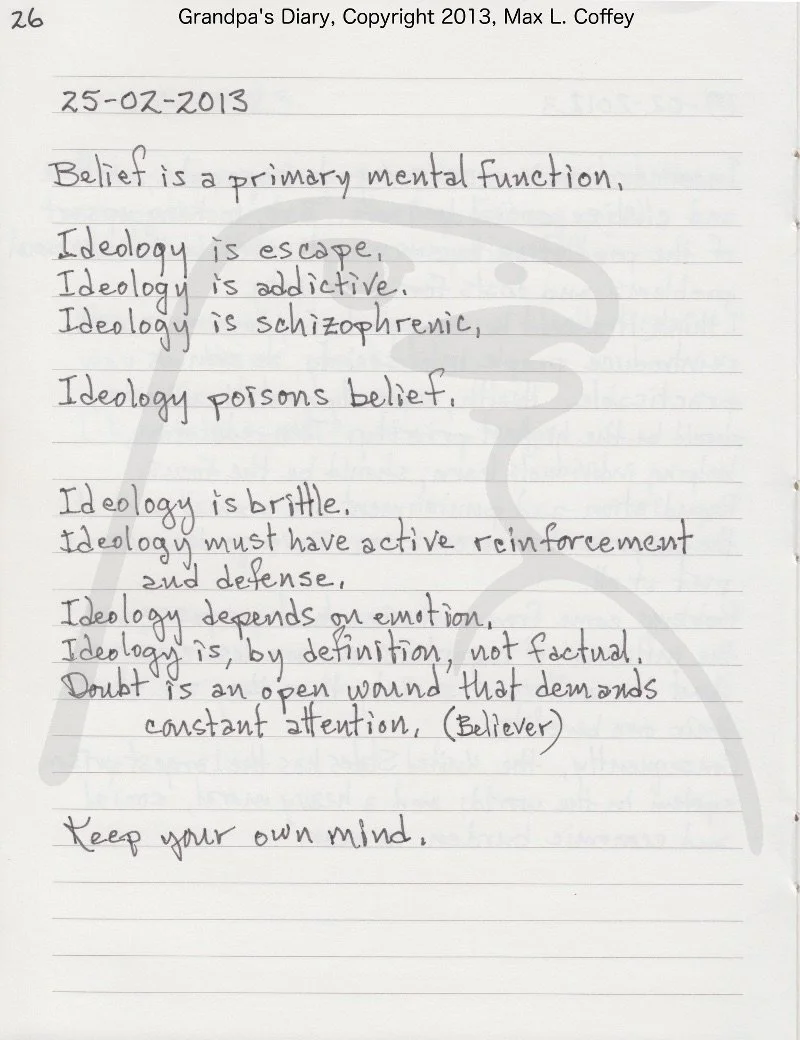 26
Grandpa's Diary, Copyright 2013, Max L. Coffey
25-02-2013
Belief is a primary mental function.
Ideology is escape.
Ideology is addictive.
Ideology is schizophrenic.
Ideology poisons belief.
Ideology is brittle.
Ideology must have active reinforcement
and defense.
Ideology depends on emotion.
Ideology is, by definition, not factual.
Doubt is an open wound that demands
constant attention. (Believer)
Keep your own mind.